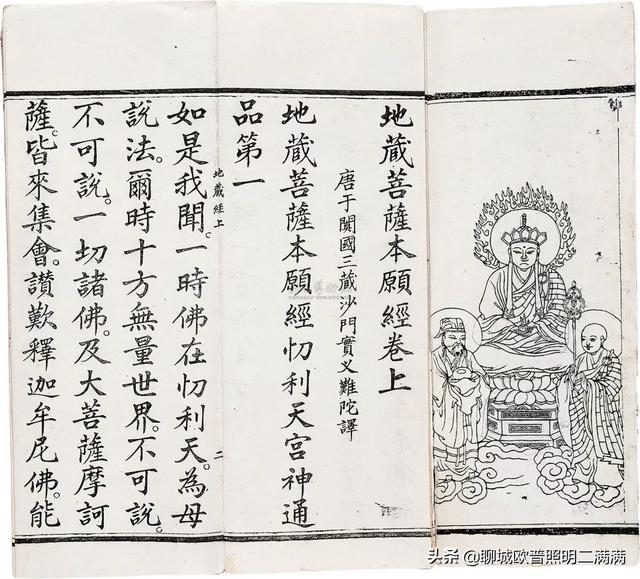 地藏菩薩本願經卷上
唐于闐國三藏沙門實叉難陀譯
地藏菩薩本願經忉利天宮神通
品第一
地藏經上 二
如是我聞。一時佛在忉利天。為母
說法。爾時十方無量世界。不可說。
不可說。一切諸佛。及大菩薩摩訶
薩。皆來集會。讚歎釋迦牟尼佛。能
头条 @聊城欧普照明二满满